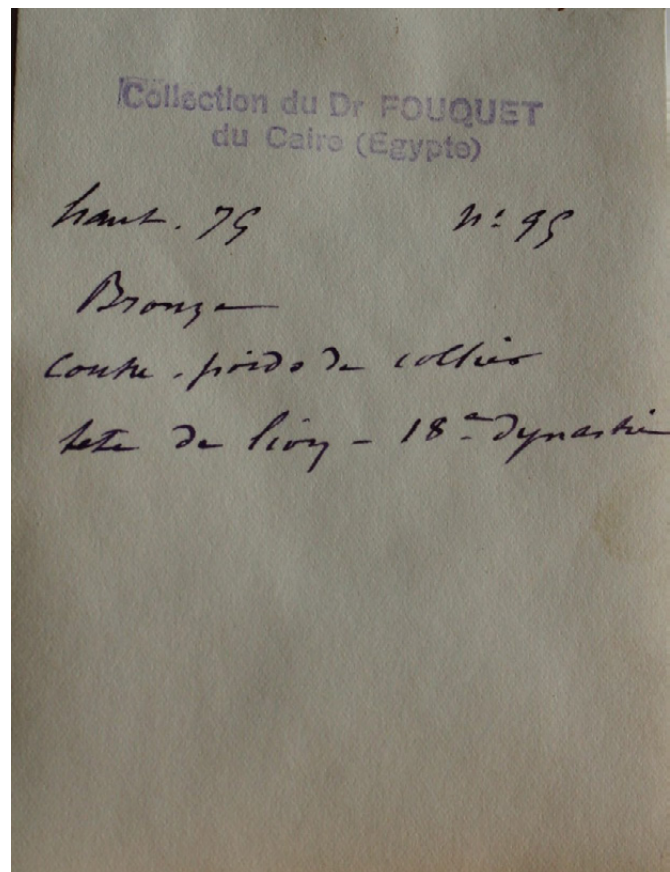 Collection du Dr FOUQUET
du Caire (Égypte)
haut. 75 n: 95
Bronze
Contre-poids de collier
tete de lion - 18e dynastie